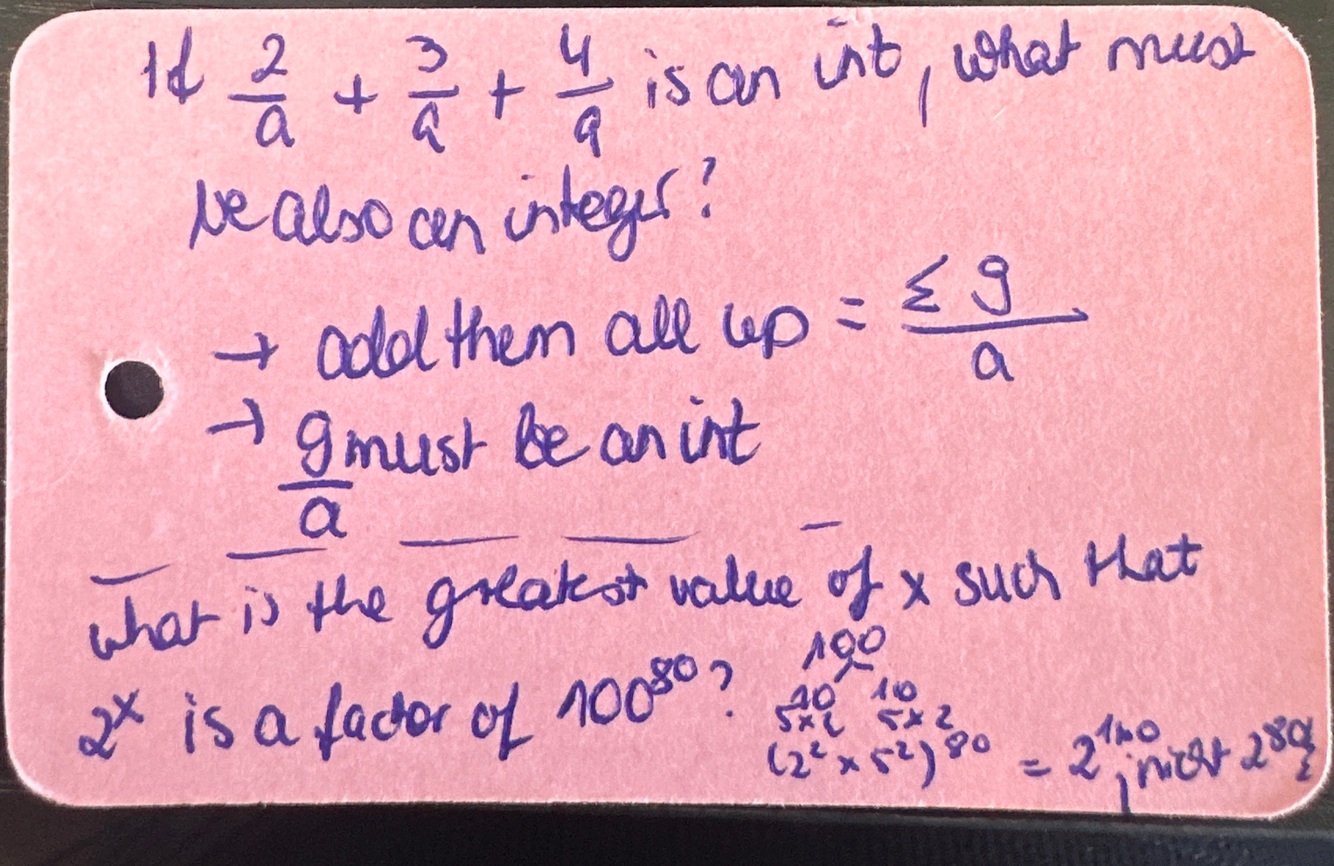 If 2/a + 3/a + 4/a is an int, what must
be also an integer?
→ add them all up = Σ 9/a
→ 9/a must be an int
what is the greatest value of x such that
2^x is a factor of 100^80?
100
10 10
5x2 5x2
(2² x 5²)^80 = 2^160, nicht 2^80!